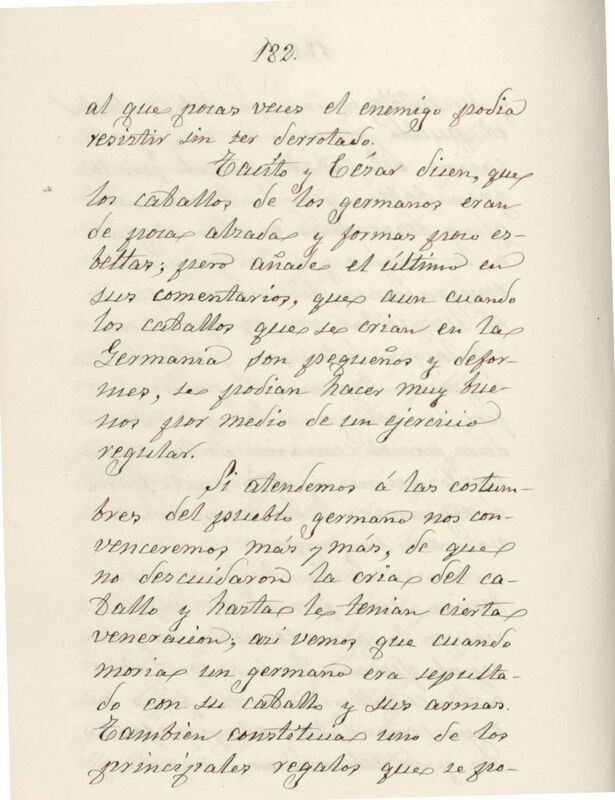 182.
al que pocas veces el enemigo podia
resistir sin ser derrotado.
Tacito y César dicen, que
los caballos de los germanos eran
de poca alzada y formas poco es-
beltas; pero añade el último en
sus comentarios, que aun cuando
los caballos que se crian en la
Germania son pequeños y defor-
mes, se podian hacer muy bue-
nos por medio de un ejercicio
regular.
Si atendemos á las costum-
bres del pueblo germano nos con-
venceremos más y más, de que
no descuidaron la cria del ca-
ballo y hasta le tenian cierta
veneracion; asi vemos que cuando
moria un germano era sepulta-
do con su caballo y sus armas.
Tambien constituia uno de los
principales regalos que se po-